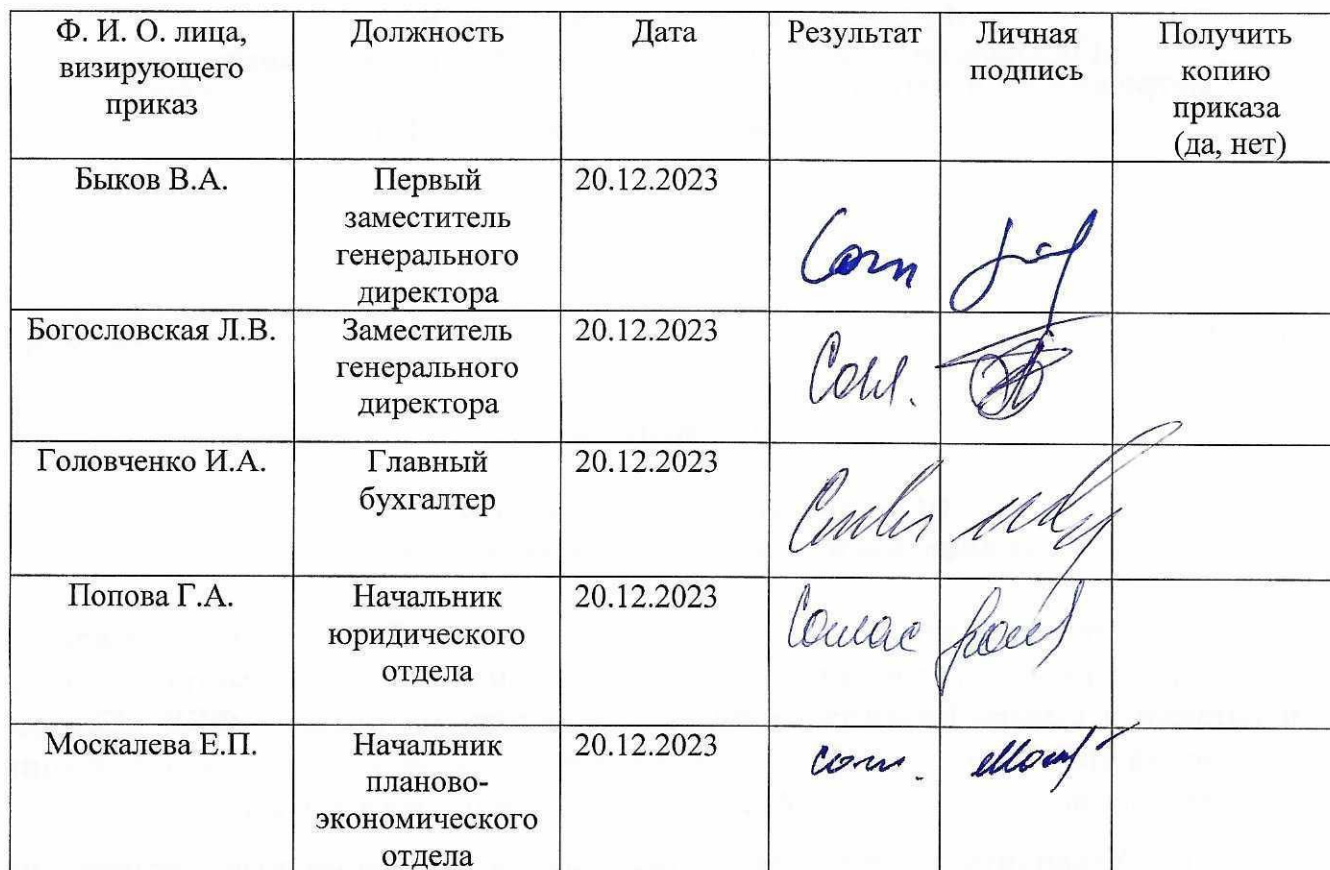 Ф. И. О. лица,
визирующего
приказ
Должность
Дата
Результат
Личная
подпись
Получить
копию
приказа
(да, нет)
Быков В.А.
Первый
заместитель
генерального
директора
20.12.2023
Согл
Богословская Л.В.
Заместитель
генерального
директора
20.12.2023
Согл.
Головченко И.А.
Главный
бухгалтер
20.12.2023
Попова Г.А.
Начальник
юридического
отдела
20.12.2023
Соглас
Москалева Е.П.
Начальник
планово-
экономического
отдела
20.12.2023
согл.